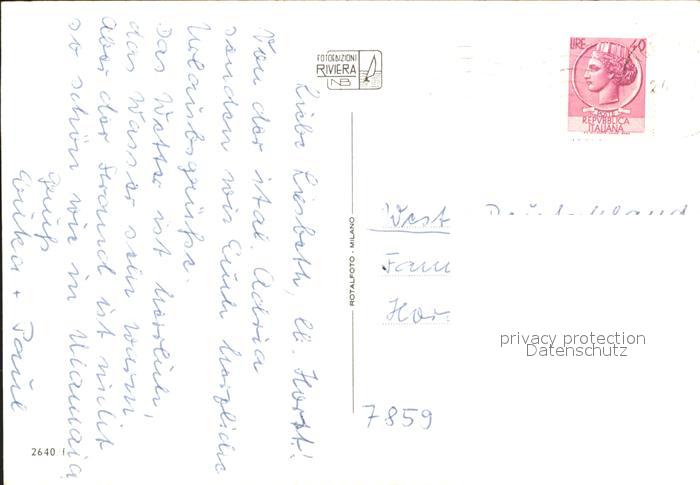 Liebe Liesbeth, lb. Horst!
Von der ital. Adria
senden wir Euch herzliche
Urlaubsgrüße.
Das Wetter ist herrlich,
das Wasser sehr warm,
aber der Strand ist nicht
so schön wie in
Gruß
Erika + Paul
2640
FOTOEDIZIONI
RIVIERA
NB
ROTALFOTO - MILANO
LIRE 40
POSTE
REPVBBLICA
ITALIANA
West Deutschland
Fam
Hor
7859
privacy protection
Datenschutz